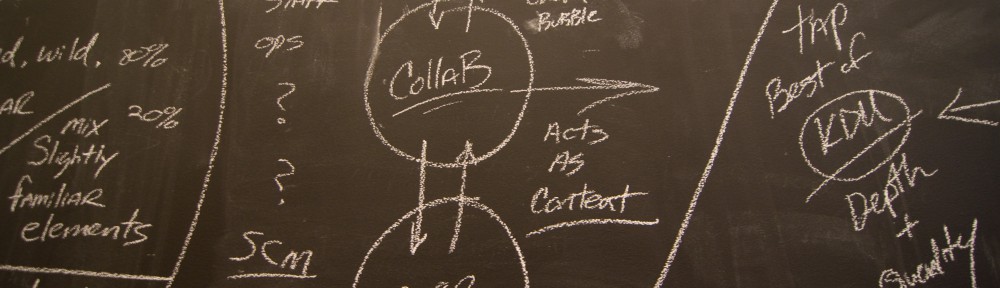 d, wild, 80%
AR / mix 20%
Slightly
familiar
elements
ops
?
?
SCM
Bubble
CollaB
Acts
As
Content
TAP
Best of
KDU
Depth
+
Quality